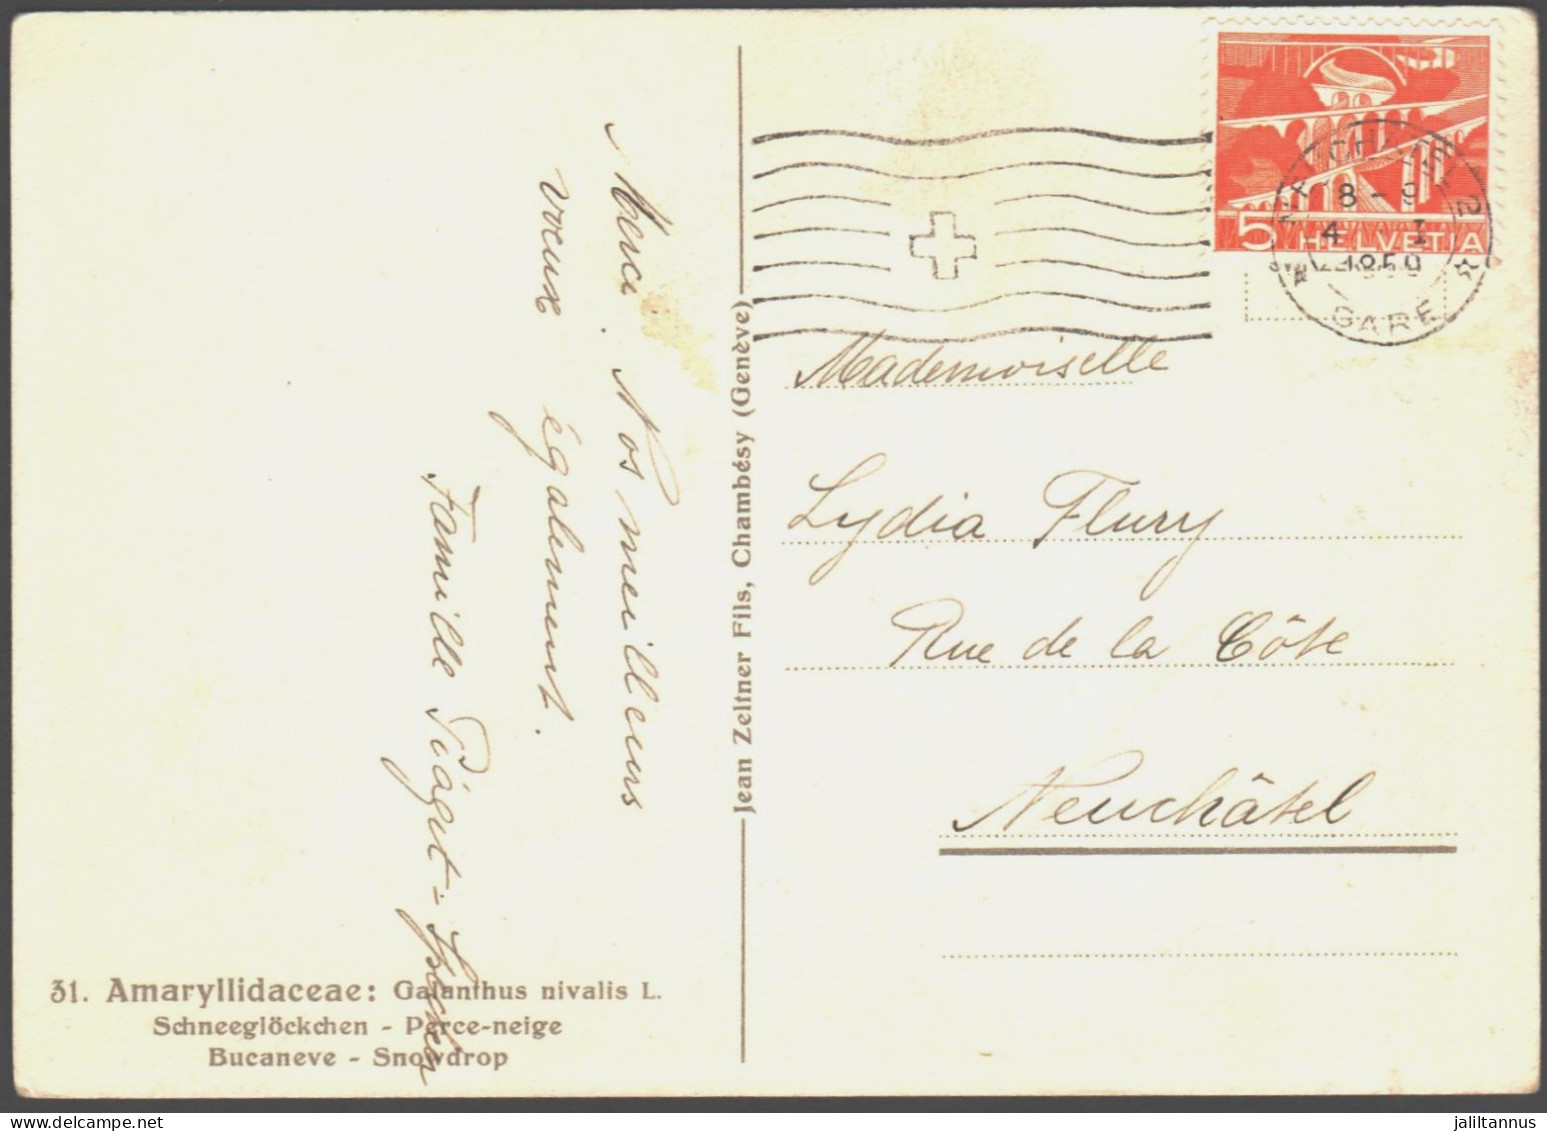 Merci. Nos meilleurs
vœux également.
Famille Piaget-
31. Amaryllidaceae: Galanthus nivalis L.
Schneeglöckchen - Perce-neige
Bucaneve - Snowdrop
Jean Zeltner Fils, Chambésy (Genève)
5 HELVETIA
NEUCHATEL 2
8 - 9
4 I
1959
GARE
Mademoiselle
Lydia Flury
Rue de la Côte
Neuchâtel
jalitannus